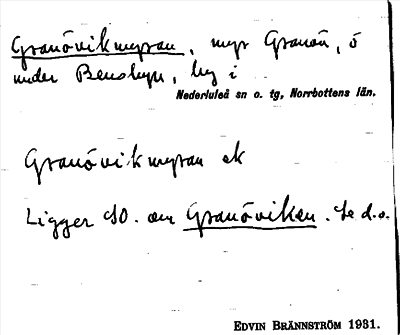 Granövikmyran, myr Granön, ö
under Benslyn, hg i
Nederluleå sn o. tg, Norrbottens län.
Granövikmyran ek
Ligger SO. om Granöviken. Se d.o.
EDVIN BRÄNNSTRÖM 1931.